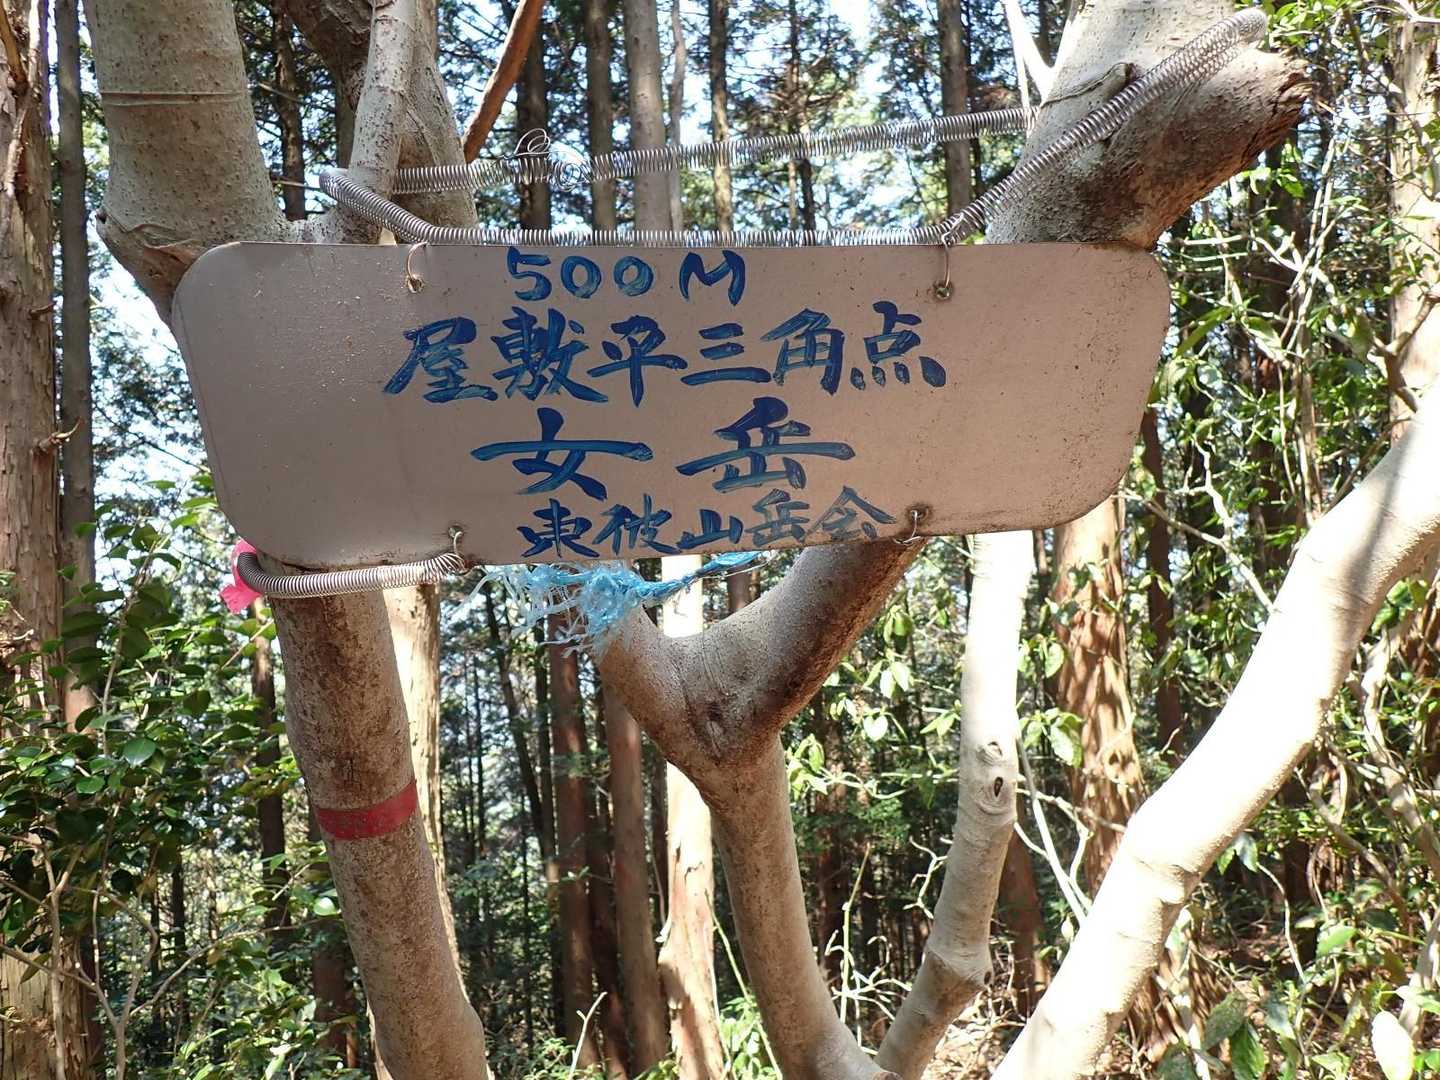 500M
屋敷平三角点
女岳
東彼山岳会